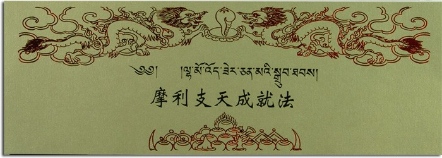 ༄༅།   །ལྷ་མོ་འོད་ཟེར་ཅན་མའི་སྒྲུབ་ཐབས།
摩利支天成就法